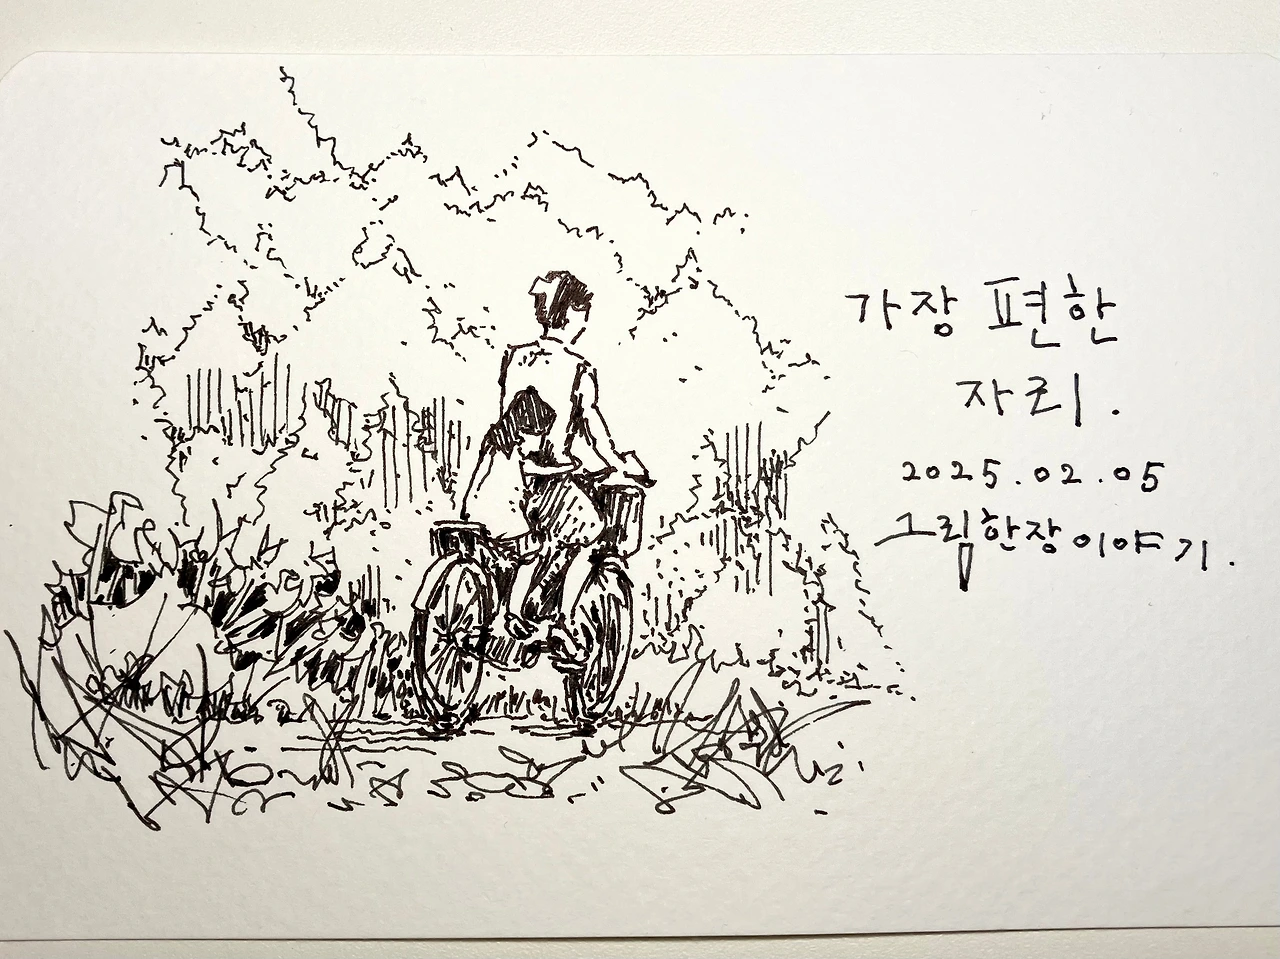 가장 편한
자리.
2025.02.05
그림한장이야기.